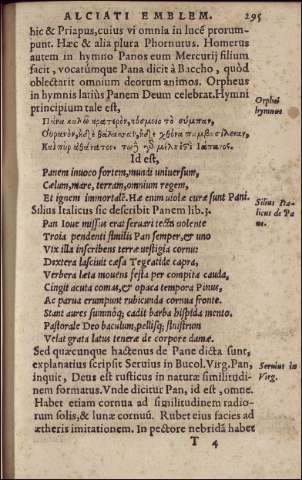 ALCIATI EMBLEM. 295
hic & Priapus, cuius vi omnia in lucē prorum-
punt. Hæc & alia plura Phornutus. Homerus
autem in hymno Panos eum Mercurij filium
facit, vocatúmque Pana dicit à Baccho, quòd
oblectarit omnium deorum animos. Orpheus
in hymnis latiùs Panem Deum celebrat. Hymni
principium tale est,
Orphei
hymnus
Πᾶνα καλῶ κρατερὸν, κόσμοιο τὸ σύμπαν,
Οὐρανὸν, ἠδὲ θάλασσαν, ἠδὲ χθόνα παμβασίλειαν,
Καὶ πῦρ ἀθάνατον·
Id est,
Panem inuoco fortem, mundi uniuersum,
Cælum, mare, terram, omnium regem,
Et ignem immortalē. Hæc enim
Pani.
Silius Italicus sic describit Panem lib. 3.
Silius Ita-
licus de Pa-
ne.
Pan Ioue missus erat seruari tecta uolente
Troia pendenti similis Pan semper, et uno
Vix illa inscribens terræ uestigia cornu:
Dextera lasciuit cæsa Tegeatide capra,
Verbera læta mouens festa per compita cauda,
Cingit acuta comas, et opaca tempora Pinus,
Ac parua erumpunt rubicunda cornua fronte.
Stant aures summóq; cadit barba hispida mento.
Pastorale Deo baculum, pellisq; sinistrum
Velat grata latus teneræ de corpore damæ.
Sed quæcunque hactenus de Pane dicta sunt,
explanatius scripsit Seruius in Bucol. Virg. Pan,
Seruius in
Virg.
inquit, Deus est rusticus in naturæ similitudi-
nem formatus. Vnde dicitur Pan, id est, omne.
Habet etiam cornua ad similitudinem radio-
rum solis, & lunæ cornuū. Rubet eius facies ad
ætheris imitationem. In pectore nebridā habet
T 4